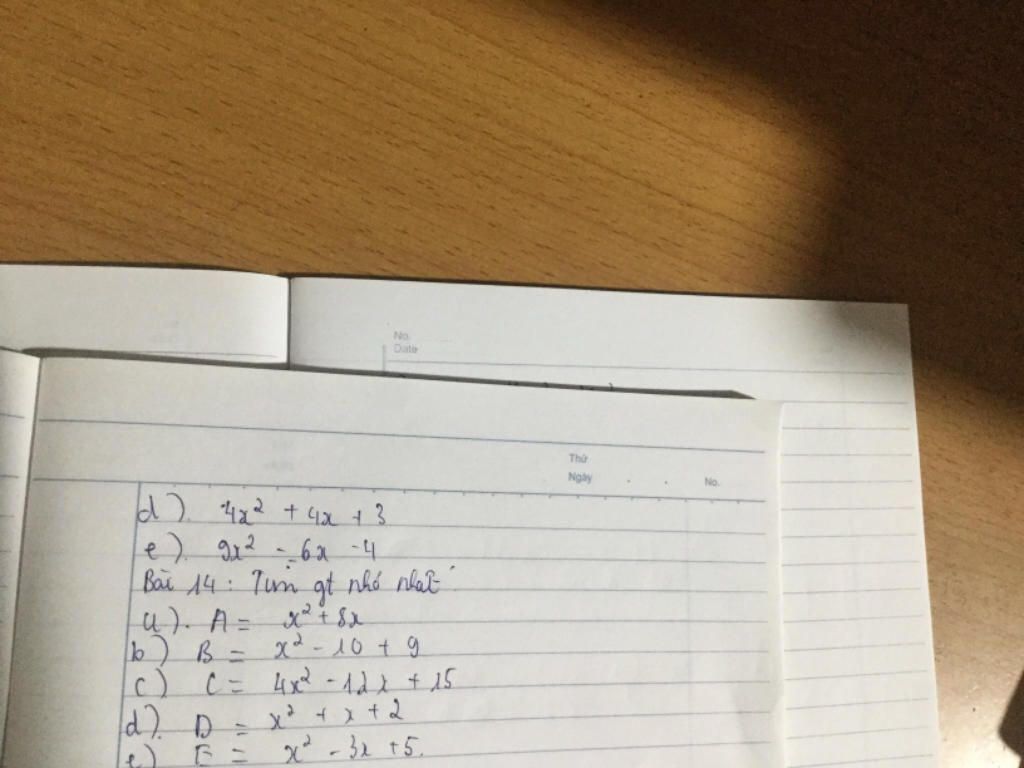 No.
Date
Thứ
Ngày No.
d). 4x² + 4x + 3
e). 9x² - 6x - 4
Bài 14 : Tìm gt nhỏ nhất
a). A = x² + 8x
b) B = x² - 10 + 9
c) C = 4x² - 12x + 15
d). D = x² + x + 2
e) E = x² - 3x + 5.